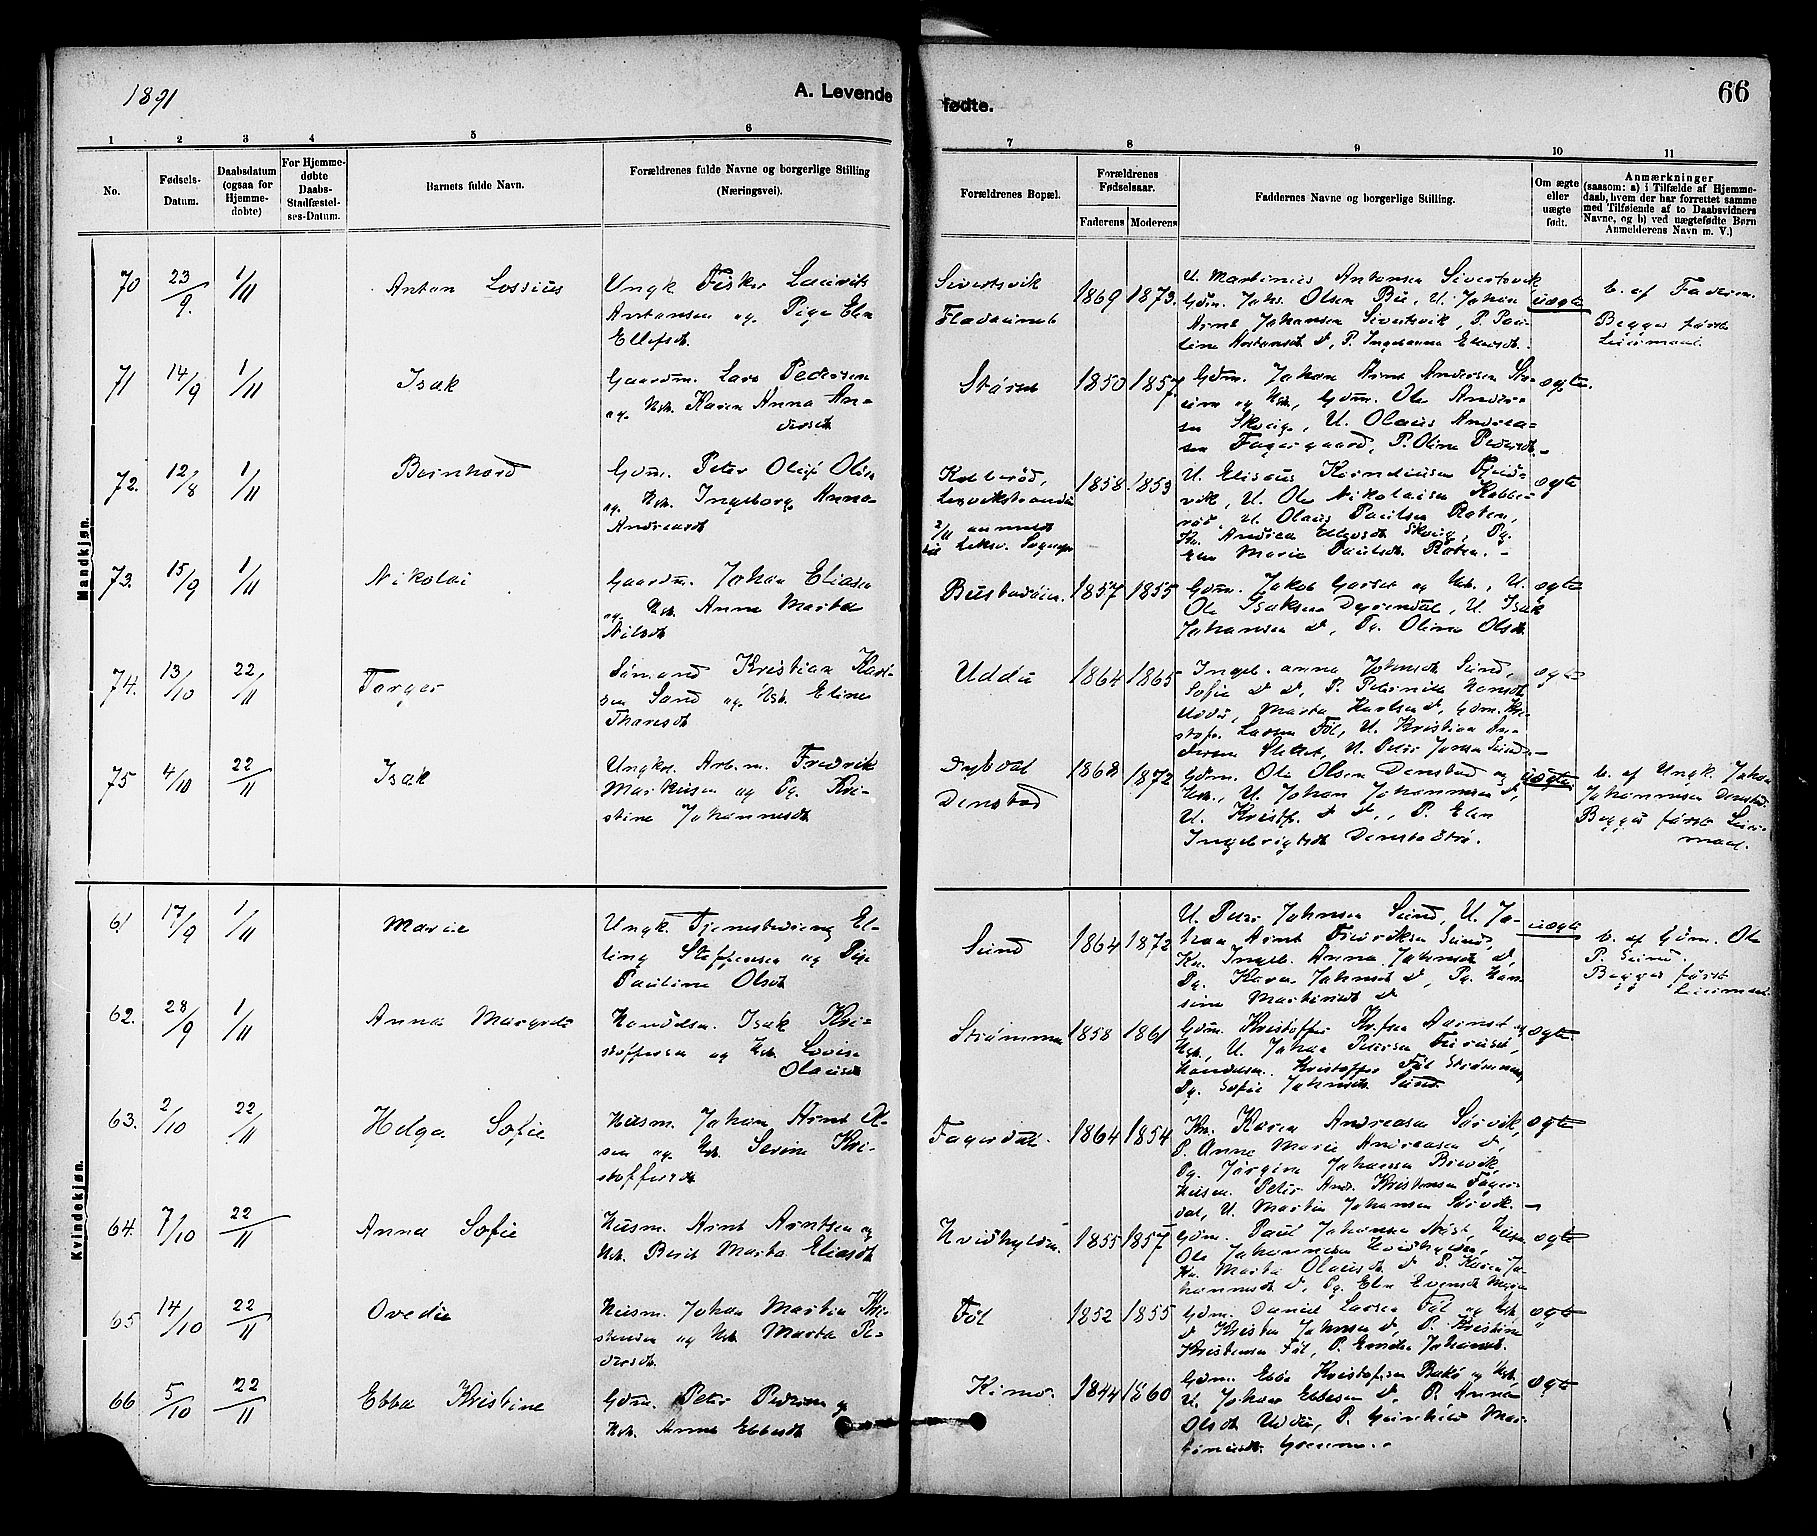 1891
A. Levende
fødte.
66
1
2
3
4
5
6
7
8
9
10
11
No.
Fødsels-
Datum.
Daabsdatum
(ogsaa for
Hjemme-
døbte)
For Hjemme-
døbte
Daabs-
Stadfæstel-
ses-Datum.
Barnets fulde Navn.
Forældrenes fulde Navne og borgerlige Stilling
(Næringsvei).
Forældrenes Bopæl.
Forældrenes
Fødselsaar.
Faderens
Moderens
Faddernes Navne og borgerlige Stilling.
Om ægte
eller
uægte
født.
Anmærkninger
(saasom: a) i Tilfælde af Hjemme-
daab, hvem der har forrettet samme
med Tilføiende af to Daabsvidners
Navne, og b) ved uægtefødte Børn
Anmelderens Navn m. V.)
Mandkjøn.
70 23/9. 1/11 Anton Lossius
Ungk. Fisker Laurits
Antonsen og Pige Elen
Ellefsdt.
Sivertsvik
1869 1873.
U. Martinius Antonsen Sivertsvik,
Gdm. Johs. Olsen Bu, U. Johan
Arnt Johansen Sivertsvik, P. Pau-
line
uægte
b. af Faderen.
Begges første
Leiermaal.
71 14/9 1/11 Isak
Gaardm. Lars Pedersen
og Hst. Karen Anna An-
dersdt.
1850 1857.
Gdm. Johan Arnt Andersen
og Hst., Gdm. Ole Ander-
sen, U. Olaus Andrea-
sen Fagergaard, P. Oline Pedersdt.
ægte.
72. 12/8 1/11 Bernhard
Gdm. Peter Oluf Olsen
og Hst. Ingeborg Anna
Andreasdt.
Kobberød,
2/11 anmeldt
1858. 1853
U. Eliseus Korneliusen
vik, U. Ole Nikolaisen Kobbe-
rød, U. Olaus Paulsen Roten,
Marie Paulsdt. Roten.
ægte
73. 15/9 1/11 Nikolai
Gaardm. Johan Eliasen
og Hst. Anne Marta
Nilsdt.
1857 1855
Gdm. Jakob Garset og Hst., U.
Ole Isaksen Dyrendal, U. Isak
Johansen d, Pg. Oline Olsdt.
ægte
74. 13/10 22/11 Torger
Sømand Kristian Karl-
sen Sund og Hst. Eline
Uddu
1864 1865
Ingeb. anna Johnsdt. Sund,
Sofie d d, P. Peternille Hansdt.
Uddu, Marta Karlsen d, Gdm. Kri-
stofer Larsen Føl, U. Kristian An-
dersen, U. Peter Johnsen Sund.
ægte
75 4/10 22/11 Isak
Ungkr. Arb.m. Fredrik
Markusen og Pg. Kri-
stine Johannesdt.
Dybdal
Denstad
1868 1872
Gdm. Ole Olsen Denstad og
Hst., U. Johan Johannesen d,
U. Kristf. d d., P. Elen
Ingebrigtsdt. Denstad
uægte
b. af Ungk. Johan
Johannesen Denstad.
Begges første Leier-
maal.
Kvindekjøn.
61 17/9 1/11 Marie
Ungk. Tjenestedreng El-
ling Steffensen og Pige
Pauline Olsdt.
Sund
1864 1872
U. Peter Johnsen Sund, U. Jo-
han Arnt Fredriksen Sund,
Kn. Ingeb. Anna Johnsdt. d,
Pg. Karen Johnsdt. d, Pg. Han-
sine
uægte
b. af Gdm. Ole
P. Sund.
Begges første
Leiermaal.
62. 28/9 1/11 Anna Margrete
Handelsm. Isak Kri-
stoffersen og Hst. Lovise
Olausdt.
Strømmen
1858 1861
Gdm. Kristoffer
Hst., U. Johan Petersen
Handelsm. Kristoffer Føl Strømmen,
Pg. Sofie Johnsdt. Sund.
ægte.
63. 2/10 22/11 Helga Sofie
Husm. Johan Arnt Ol-
sen og Hst. Serine Kri-
stoffersdt.
Fagerdal.
1864 1854
Kn. Karen Andreasen Sørvik,
P. Anne Marie Andreasen d,
Pg. Jørgine Johansen
Husm. Peter Andr. Kristensen Fager-
dal, U. Martin Johansen Sørvik.
ægte
64. 7/10 22/11 Anna Sofie
Husm. Arnt Arntsen og
Hst. Berit Marta Eliasdt.
1855 1857
Gdm. Paul Johansen, Husm.
Ole Johannesen
Kn. Marta Olausdt. d, P. Karen Jo-
hannesdt. d, Pg. Elen Evensdt.
ægte
65 14/10 22/11 Ovedie
Husm. Johan Martin Kri-
stensen og Hst. Marta Pe-
dersdt.
Føl
1852 1855
Gdm. Daniel Larsen Føl og Hst.
d Kristen Johnsen d, P. Kristine
Kristensen Føl, P. Johansdt.
ægte
66 5/10 22/11 Ebba Kristine
Gdm. Peter Pedersen og
Hst. Anne Ebbesdt.
1844 1860
Gdm. Ebbe Kristofersen og Hst.
U. Johan Ebbesen d, P. Anna
Olsdt. Uddu, P.
ægte